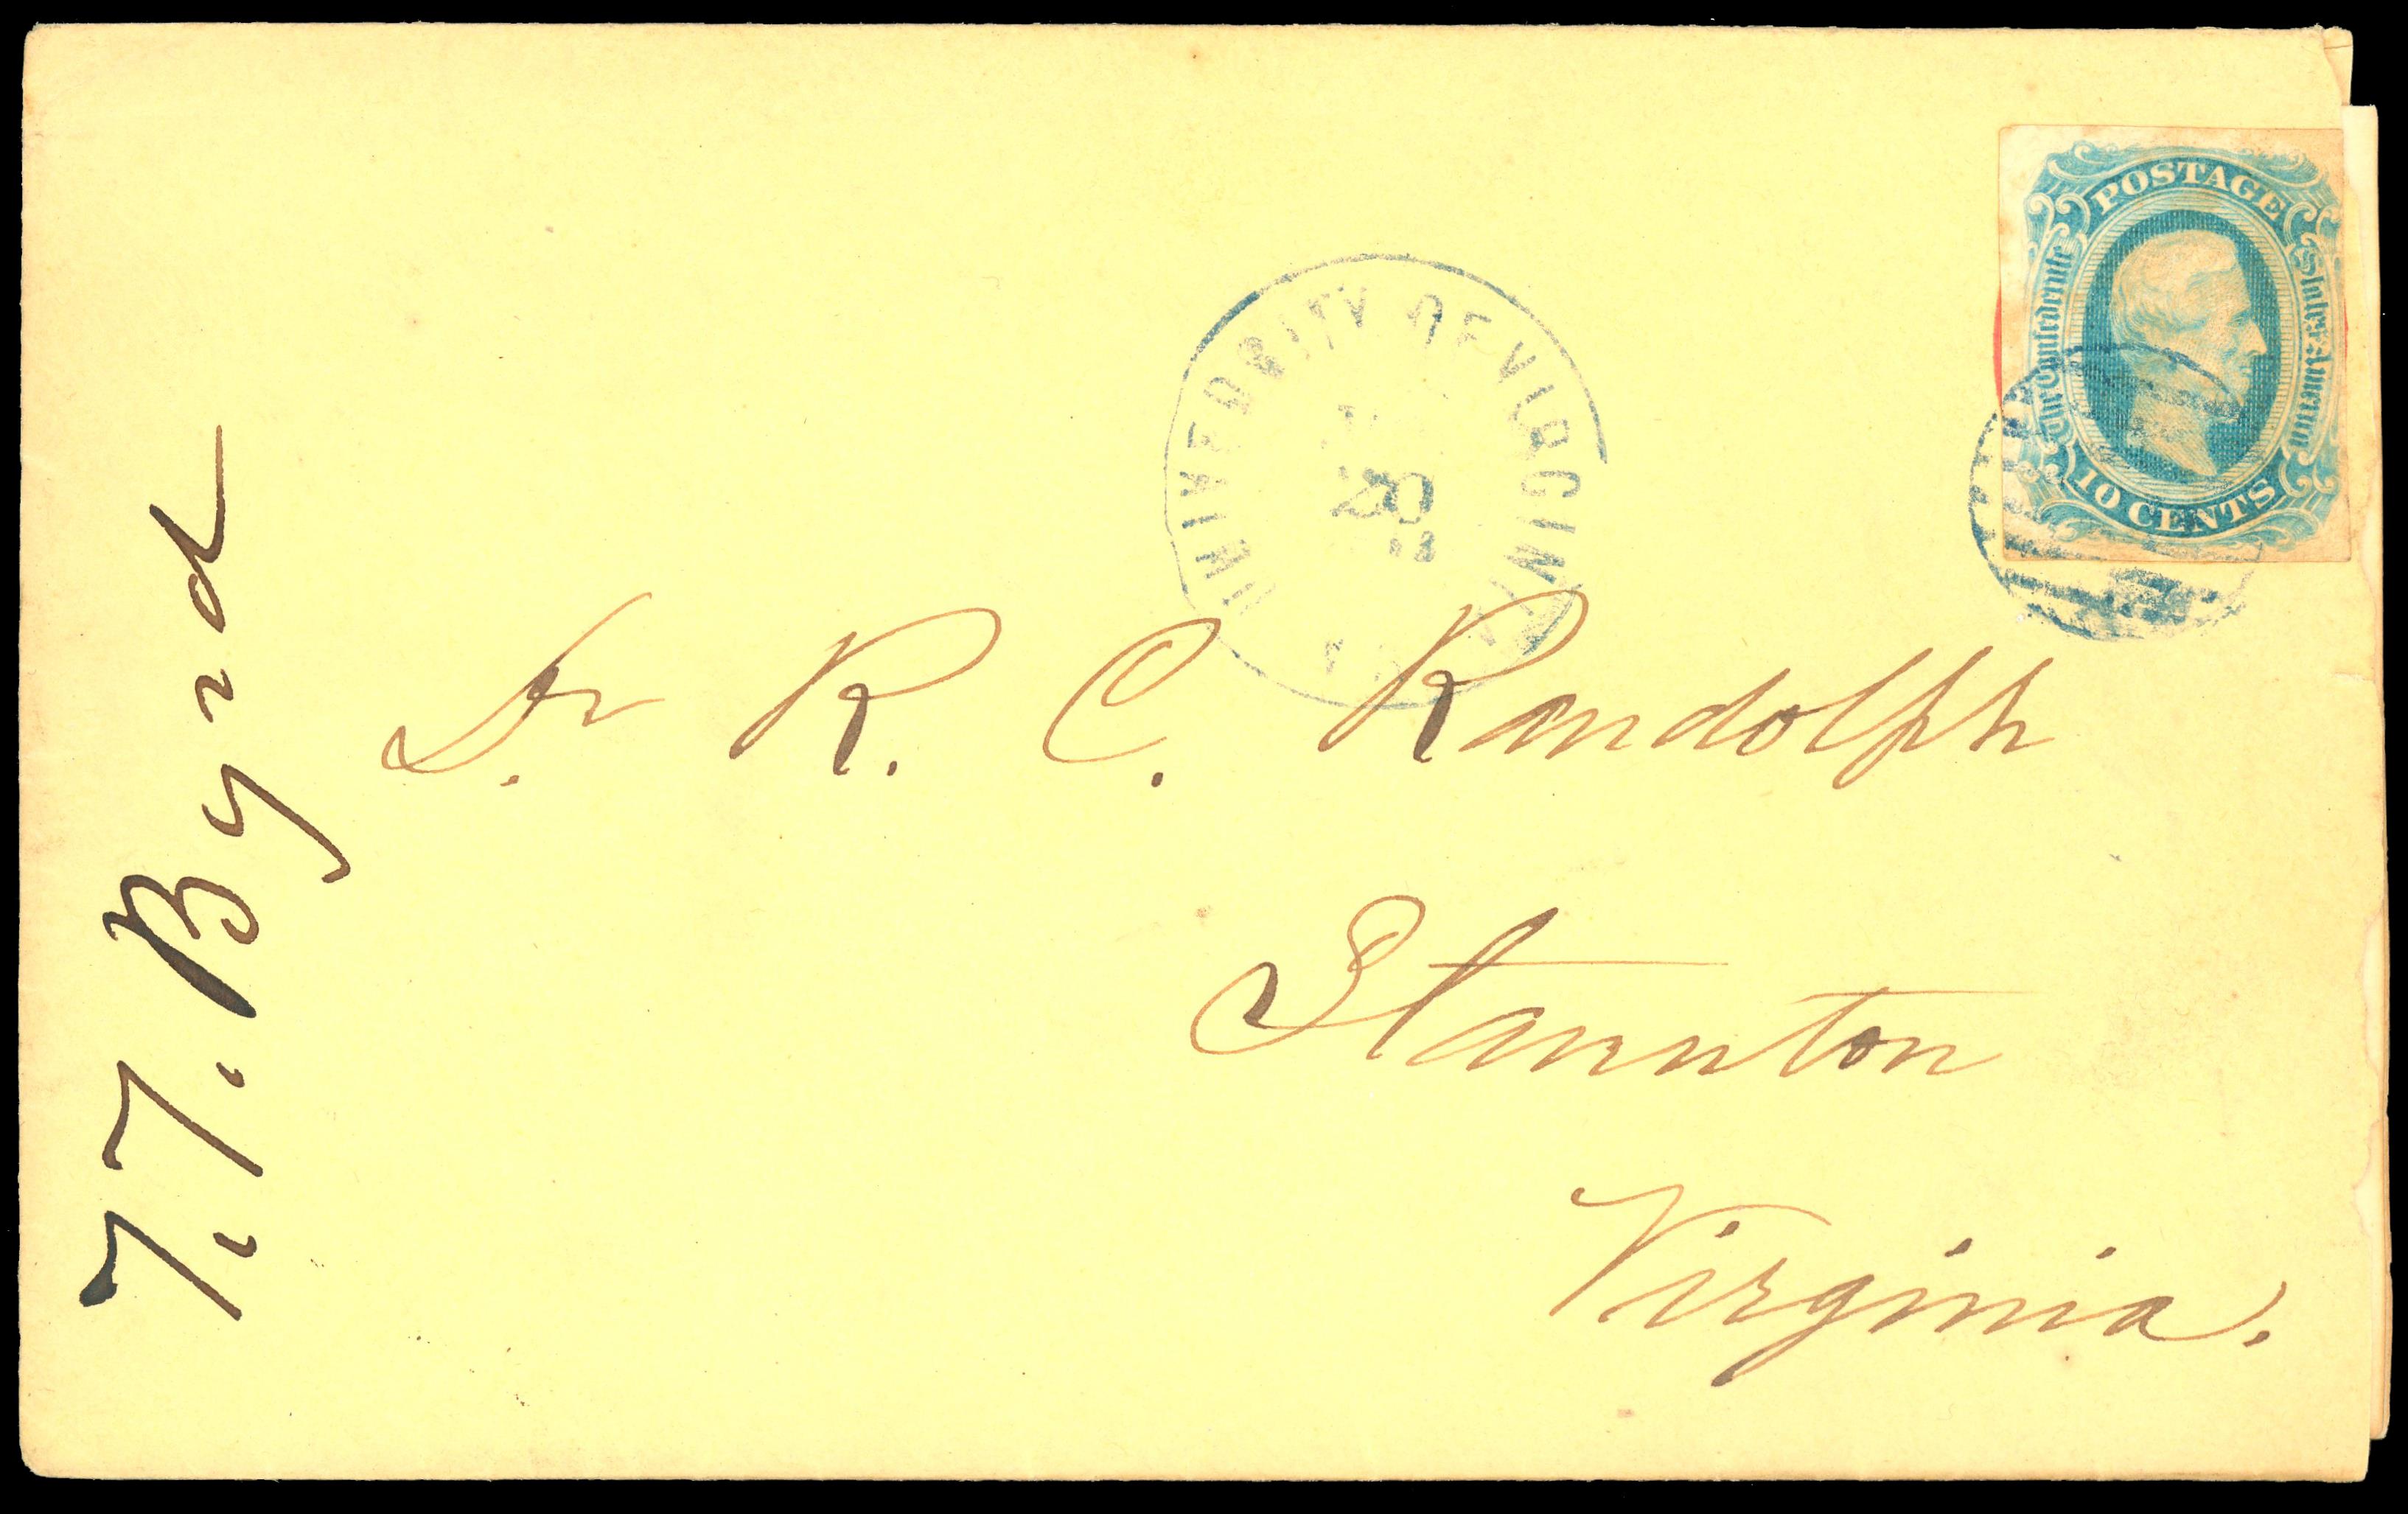 POSTAGE
The Confederate
States of America
10 CENTS
UNIVERSITY OF VIRGINIA
20
Dr. R. C. Randolph
Staunton
Virginia.
T. T. Byrd